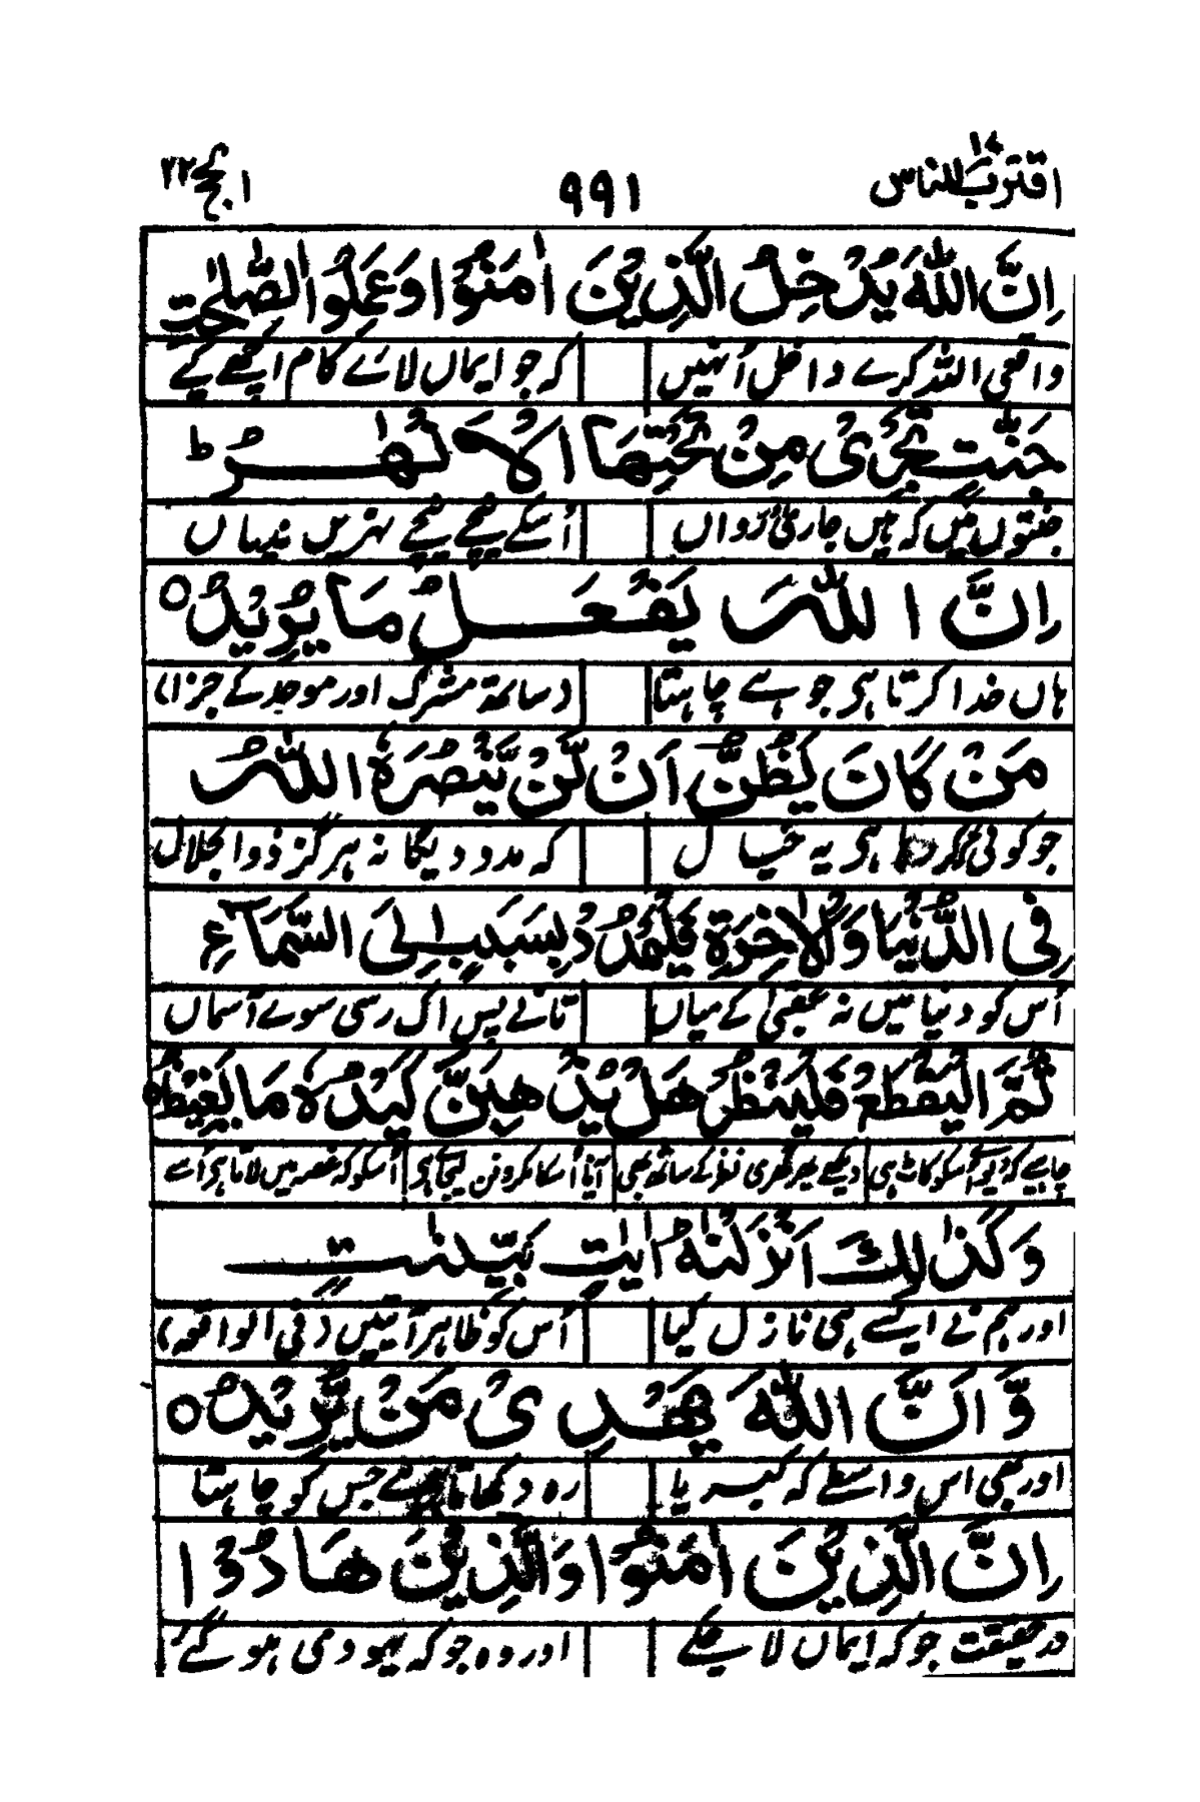 اقترب للناس ١٧
٩٩١
الحج ٢٢
اِنَّ اللّٰهَ يُدْخِلُ الَّذِيْنَ اٰمَنُوْا وَعَمِلُوا الصّٰلِحٰتِ
واقعی اللہ کرے داخل اُنہیں کہ جو ایماں لائے کام اچھے کیے
جَنّٰتٍ تَجْرِيْ مِنْ تَحْتِهَا الْاَنْهٰرُ ط
جنتوں میں کہ ہیں جاری رواں اُسکے نیچے نیچے نہریں ندیاں
اِنَّ اللّٰهَ يَفْعَلُ مَا يُرِيْدُ ○
ہاں خدا کرتا ہی جو ہے چاہتا (ساتھ مشرک اور موحد کے جزا)
مَنْ كَانَ يَظُنُّ اَنْ لَّنْ يَّنْصُرَهُ اللّٰهُ
جو کوئی کرتا ہی یہ خیال کہ مدد دیگا نہ ہرگز ذوالجلال
فِى الدُّنْيَا وَالْاٰخِرَةِ فَلْيَمْدُدْ بِسَبَبٍ اِلَى السَّمَآءِ
اُس کو دنیا میں نہ عقبیٰ کے میاں تانے پس اک رسی سوئے آسماں
ثُمَّ الْيَقْطَعْ فَلْيَنْظُرْ هَلْ يُذْهِبَنَّ كَيْدُهٗ مَا يَغِيْظُ ○
چاہیے کہ اُسکو کاٹ ہی دیکھے پھر گہری نظر کے ساتھ بھی آیا اُسکا مکر و فن لیجے ہی اُسکو کہ غصہ میں لاتا ہی اُسے
وَكَذٰلِكَ اَنْزَلْنٰهُ اٰيٰتٍۢ بَيِّنٰتٍ
اور ہم نے ایسے ہی نازل کیا اُس کو ظاہر آیتیں (فی الواقعہ)
وَّاَنَّ اللّٰهَ يَهْدِيْ مَنْ يُّرِيْدُ ○
اور بھی اس واسطے کہ کبریا رہ دکھاتا ہے جس کو چاہتا
اِنَّ الَّذِيْنَ اٰمَنُوْا وَالَّذِيْنَ هَادُوْا
در حقیقت جو کہ ایماں لا چکے اور وہ جو کہ یہودی ہو گئے